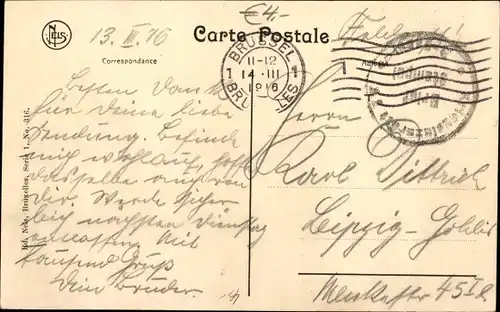 €4.-
NELS
Carte Postale
Feldpost
13. III. 16
Correspondance
BRUSSEL
1 11-12 1
14 III
1916
BRUXELLES
Besten Dank
für Deine liebe
Sendung. Befinde
mich wohlauf, hoffe
dasselbe auch von
Dir. Werde Sicher
bis nächsten Dienstag
Mit
tausend Gruß
Dein Bruder
Herrn
Karl Dittrich
Leipzig-Gohlis
45 I
Ed. Nels, Bruxelles, Serie 1, No. 316.